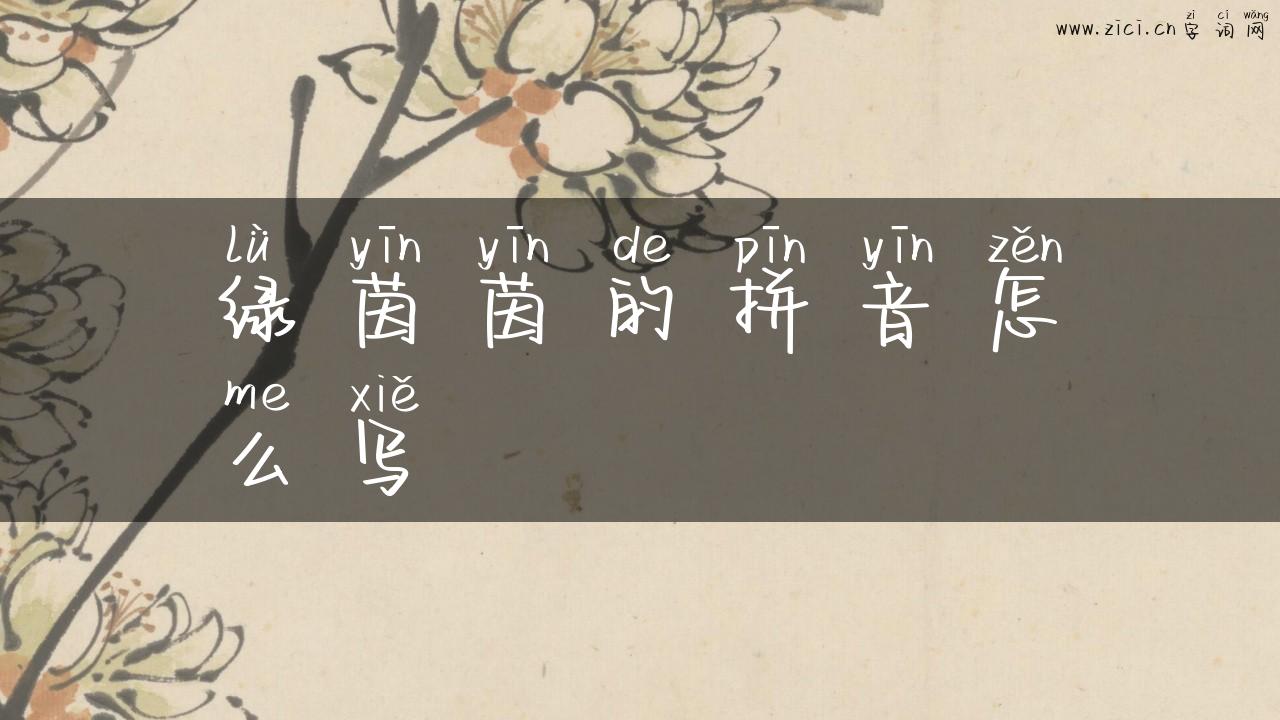 zì cí wǎng
www.zici.cn 字 词 网
lǜ yīn yīn de pīn yīn zěn
绿 茵 茵 的 拼 音 怎
me xiě
么 写